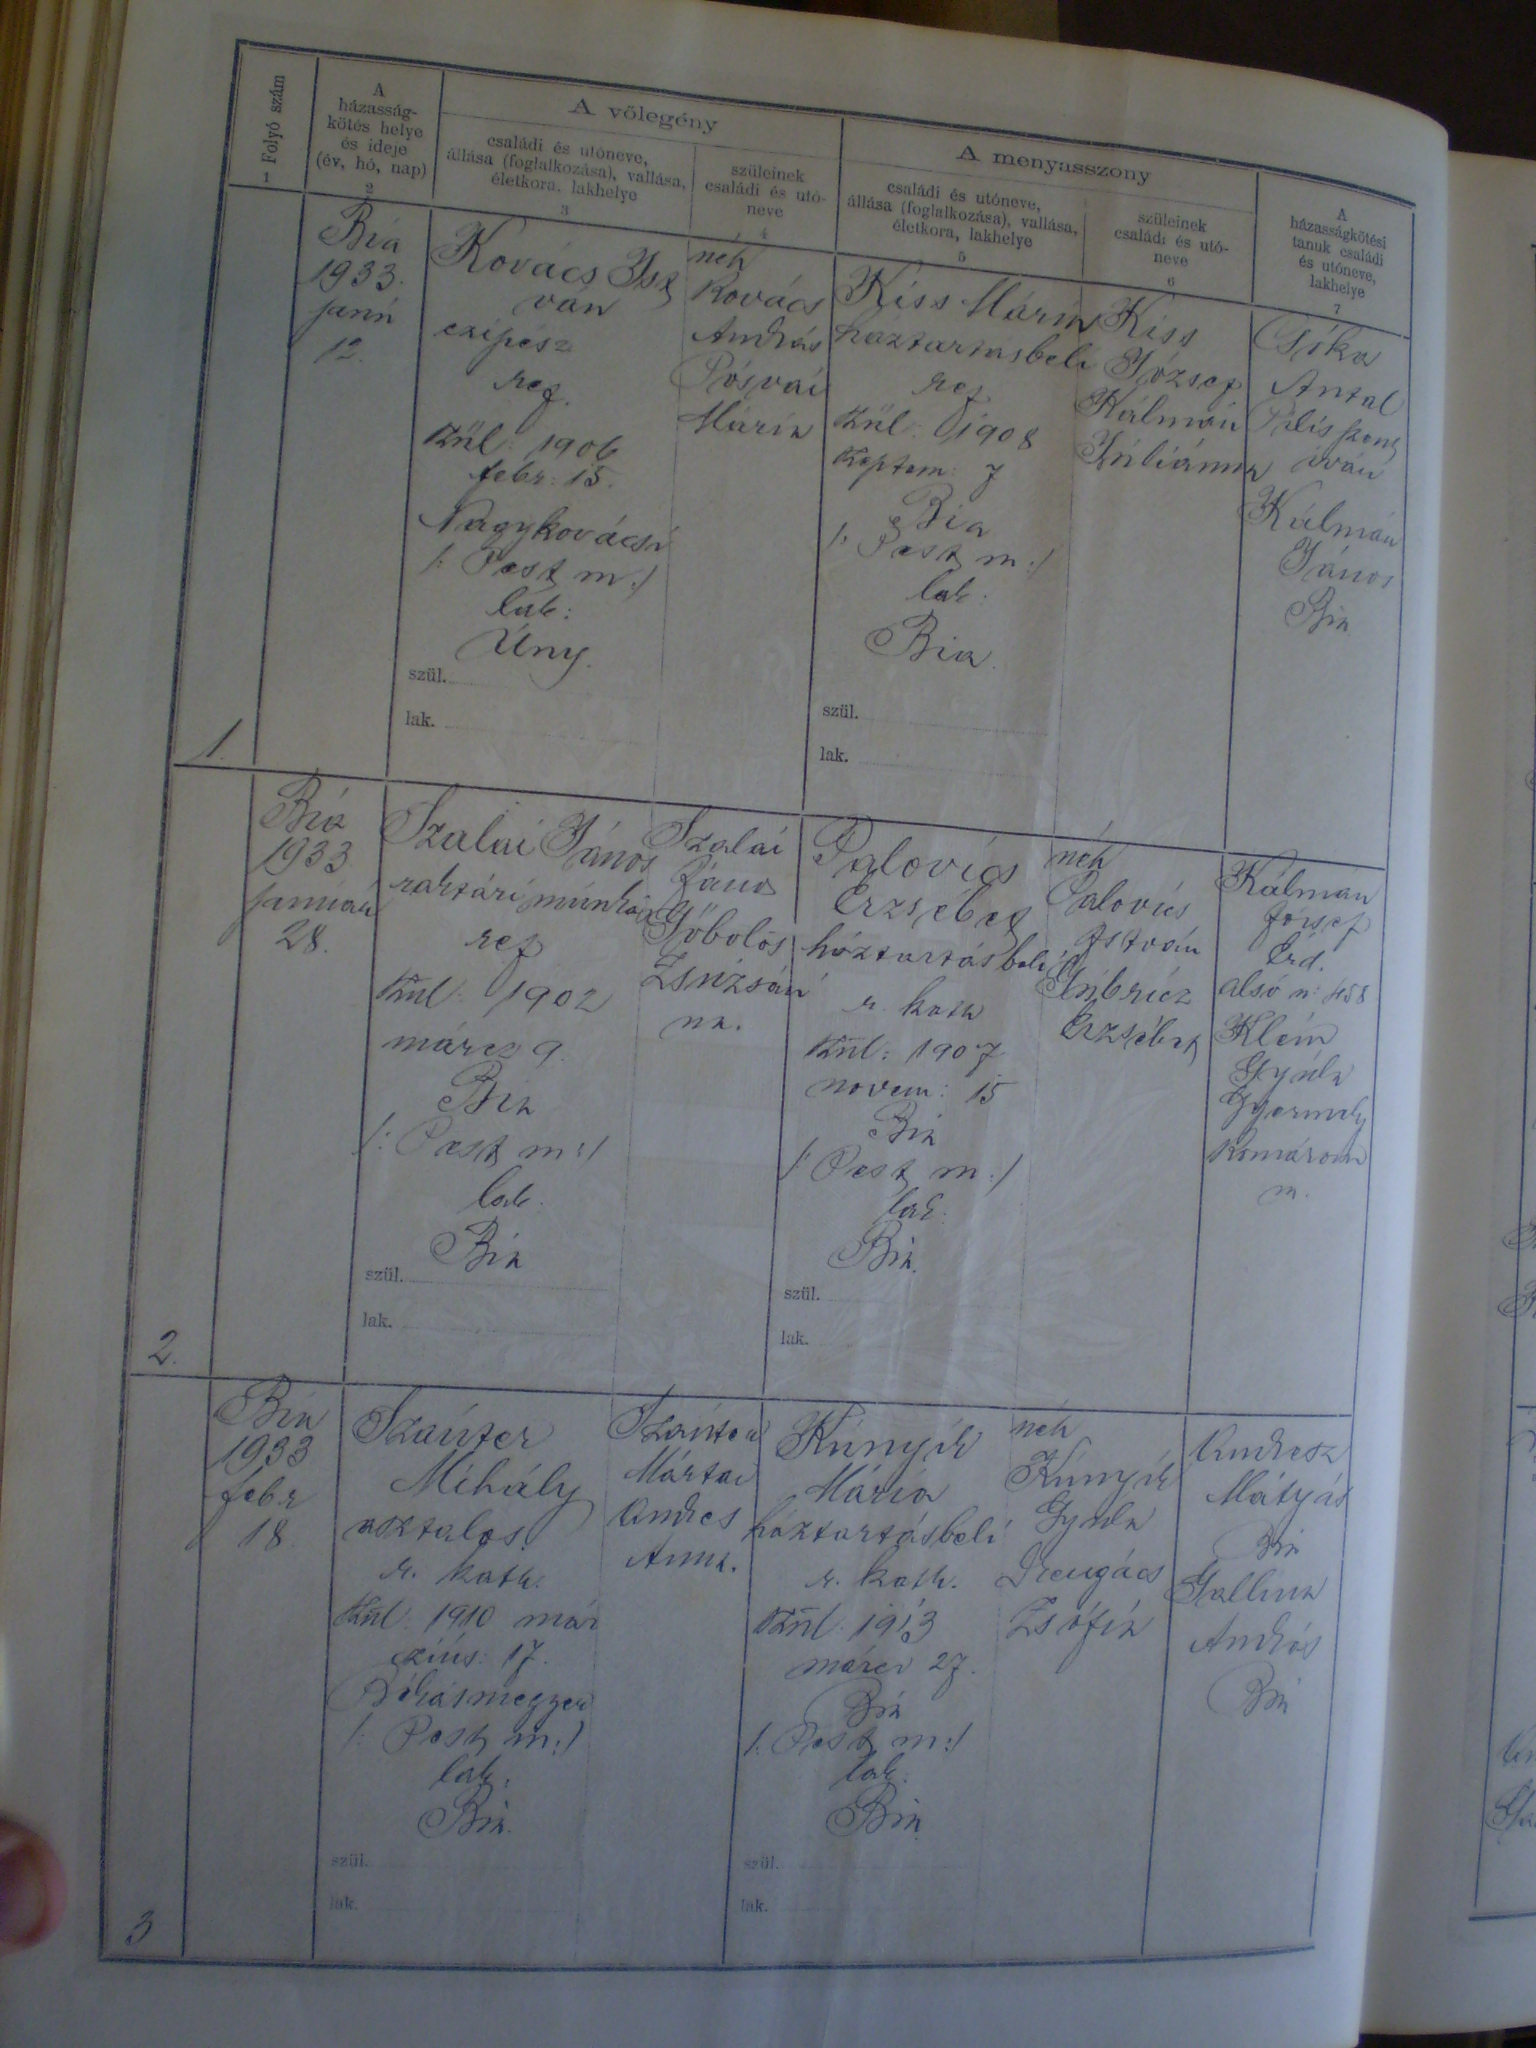 Folyó szám
1
A
házasság-
kötés helye
és ideje
(év, hó, nap)
2
A vőlegény
családi és utóneve,
állása (foglalkozása), vallása,
életkora, lakhelye
3
szüleinek
családi és utó-
neve
4
A menyasszony
családi és utóneve,
állása (foglalkozása), vallása,
életkora, lakhelye
5
szüleinek
családi és utó-
neve
6
A
házasságkötési
tanuk családi
és utóneve,
lakhelye
7
1.
Bia
1933.
janu
12.
Kovács Ist
ván
czipész
ref.
szül: 1906
febr: 15.
Nagykovácsi
/: Pest m:/
lak:
Úny.
szül.
lak.
néh
Kovács
András
Pósvai
Mária
Kiss Mária
háztartásbeli
ref
szül: 1908
szeptem: 7
Bia
/: Pest m:/
lak:
Bia.
szül.
lak.
Kiss
József
Kálmán
Júliánna
Antal
Kálmán
János
Bia
2.
Bia
1933
január
28.
Szalai János
raktári munkás
ref
szül: 1902
márcz 9.
Bia
/: Pest m:/
lak:
Bia
szül.
lak.
Szalai
János
Göbölös
Zsuzsán
na.
Palovics
Erzsébet
háztartásbeli
r. kath
szül: 1907
novem: 15
Bia
/: Pest m:/
lak:
Bia.
szül.
lak.
néh
Palovics
István
Erzsébet
Kálmán
József
Érd.
alsó u: 458
Klein
Gyula
Gyermely
Komárom
m.
3
Bia
1933
febr
18.
Szauter
Mihály
asztalos.
r. kath.
szül: 1910 már
czius: 17.
Békásmegyer
/: Pest m:/
lak:
Bia.
szül.
lak.
Szauter
Márton
Andres
Anna.
Kunyik
Mária
háztartásbeli
r. kath.
szül: 1913
márcz 27.
Bia
/: Pest m:/
lak:
Bia
szül.
lak.
néh
Kunyik
Gyula
Zsófia
Andresz
Mátyás
Bia
Gallina
András
Bia